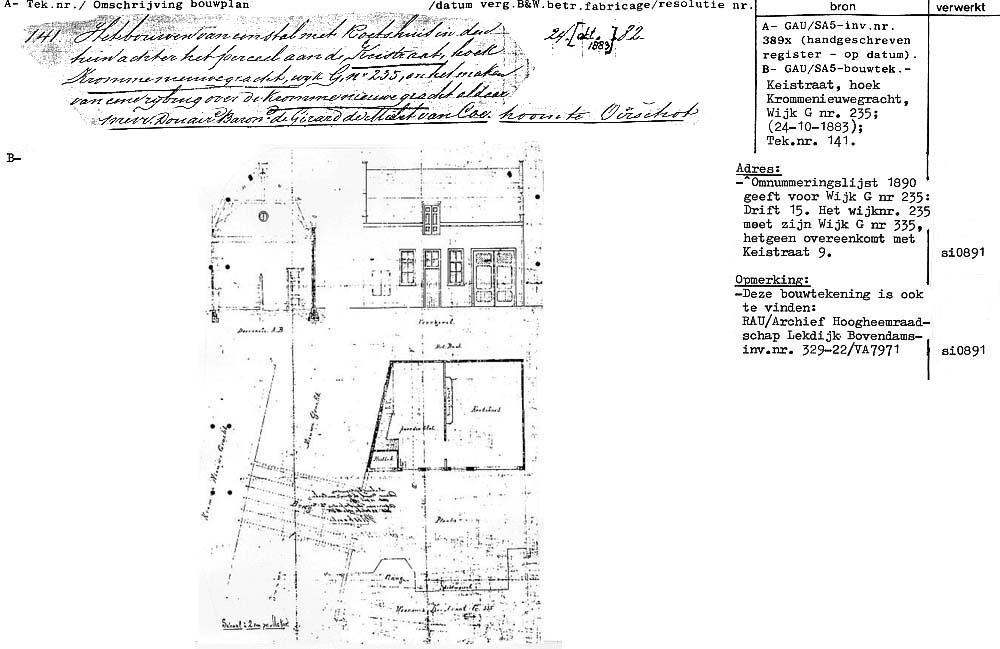 A- Tek.nr./ Omschrijving bouwplan /datum verg.B&W.betr.fabricage/resolutie nr. bron verwerkt
141. Het bouwen van een stal met Koetshuis in den
tuin achter het perceel aan de Keistraat, hoek
Kromme nieuwe gracht, wijk G, nº 235, en het maken
van eene brug over de Kromme nieuwe gracht aldaar
mevr. Douair. Baron de Girard de Mielet van Coe. hoorn te Oirschot
24 [okt. 1883] 82
A- GAU/SA5-inv.nr.
389x (handgeschreven
register - op datum).
B- GAU/SA5-bouwtek.-
Keistraat, hoek
Krommenieuwegracht,
Wijk G nr. 235;
(24-10-1883);
Tek.nr. 141.
Adres:
-^Omnummeringslijst 1890
geeft voor Wijk G nr 235:
Drift 15. Het wijknr. 235
moet zijn Wijk G nr 335,
hetgeen overeenkomt met
Keistraat 9. si0891
Opmerking:
-Deze bouwtekening is ook
te vinden:
RAU/Archief Hoogheemraad-
schap Lekdijk Bovendams-
inv.nr. 329-22/VA7971 si0891
B-
Doorsnede A.B
Voorgevel
Koetshuis
Paardenstal
Plaats
Gang